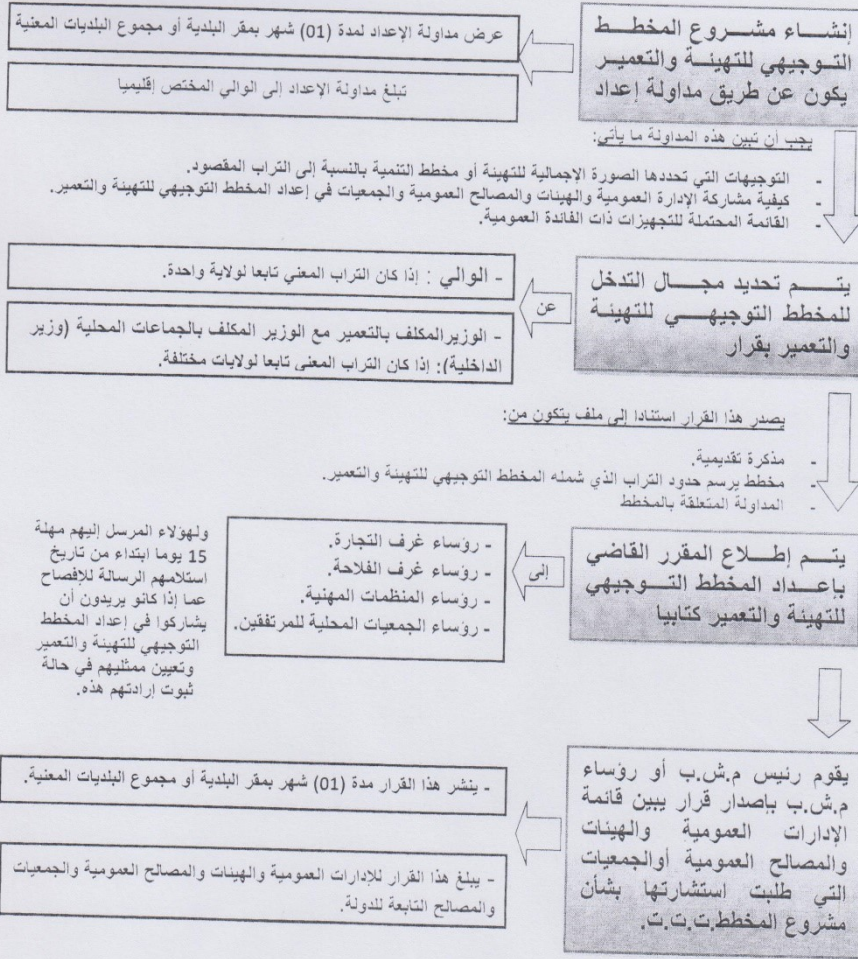 إنشاء مشروع المخطط
التوجيهي للتهيئة والتعمير
يكون عن طريق مداولة إعداد
عرض مداولة الإعداد لمدة (01) شهر بمقر البلدية أو مجموع البلديات المعنية
تبلغ مداولة الإعداد إلى الوالي المختص إقليميا
يجب أن تبين هذه المداولة ما يأتي:
- التوجيهات التي تحددها الصورة الإجمالية للتهيئة أو مخطط التنمية بالنسبة إلى التراب المقصود.
- كيفية مشاركة الإدارة العمومية والهيئات والمصالح العمومية والجمعيات في إعداد المخطط التوجيهي للتهيئة والتعمير.
- القائمة المحتملة للتجهيزات ذات الفائدة العمومية.
يتم تحديد مجال التدخل
للمخطط التوجيهي للتهيئة
والتعمير بقرار
عن
- الوالي : إذا كان التراب المعني تابعا لولاية واحدة.
- الوزيرالمكلف بالتعمير مع الوزير المكلف بالجماعات المحلية (وزير
الداخلية): إذا كان التراب المعني تابعا لولايات مختلفة.
يصدر هذا القرار استنادا إلى ملف يتكون من:
- مذكرة تقديمية.
- مخطط يرسم حدود التراب الذي شمله المخطط التوجيهي للتهيئة والتعمير.
- المداولة المتعلقة بالمخطط
يتم إطلاع المقرر القاضي
بإعداد المخطط التوجيهي
للتهيئة والتعمير كتابيا
إلى
- رؤساء غرف التجارة.
- رؤساء غرف الفلاحة.
- رؤساء المنظمات المهنية.
- رؤساء الجمعيات المحلية للمرتفقين.
ولهؤلاء المرسل إليهم مهلة
15 يوما ابتداء من تاريخ
استلامهم الرسالة للإفصاح
عما إذا كانو يريدون أن
يشاركوا في إعداد المخطط
التوجيهي للتهيئة والتعمير
وتعيين ممثليهم في حالة
ثبوت إرادتهم هذه.
يقوم رئيس م.ش.ب أو رؤساء
م.ش.ب بإصدار قرار يبين قائمة
الإدارات العمومية والهيئات
والمصالح العمومية أوالجمعيات
التي طلبت استشارتها بشأن
مشروع المخطط.ت.ت.ت.
- ينشر هذا القرار مدة (01) شهر بمقر البلدية أو مجموع البلديات المعنية.
- يبلغ هذا القرار للإدارات العمومية والهيئات والمصالح العمومية والجمعيات
والمصالح التابعة للدولة.